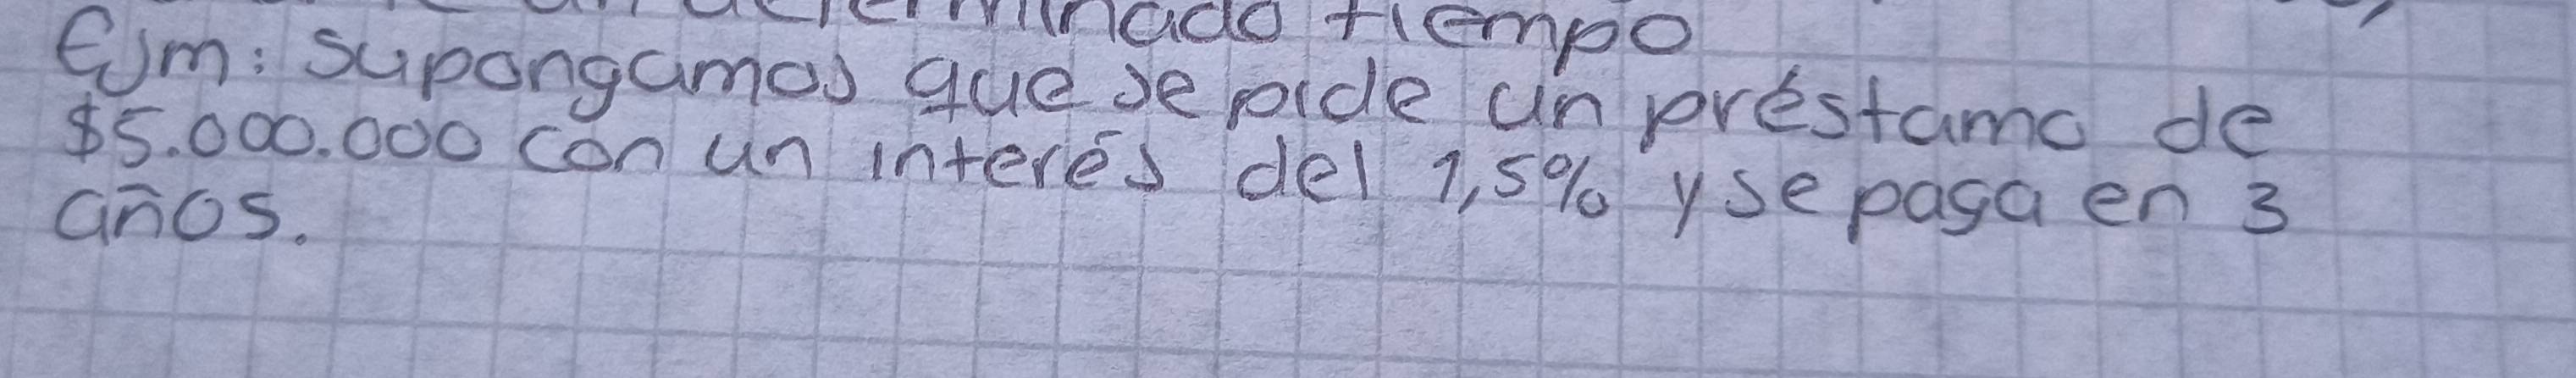 determinado tiempo
Ejm: supongamos que se pide un préstamo de
$5.000.000 con un interés del 1,5% y se paga en 3
años.